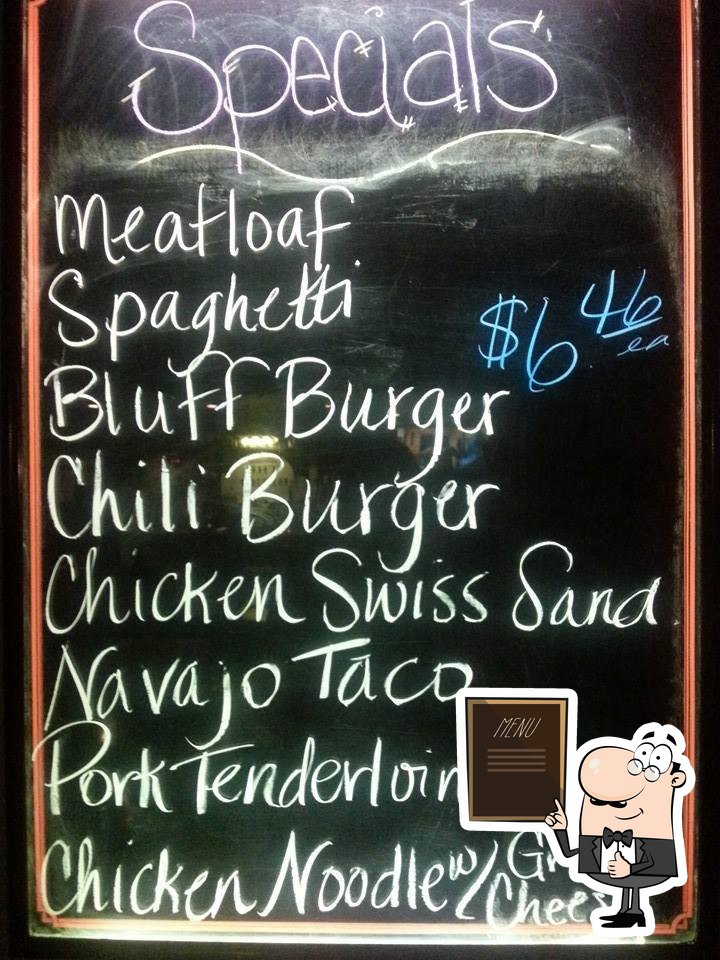 Specials
Meatloaf
Spaghetti
$6.46
ea
Bluff Burger
Chili Burger
Chicken Swiss Sand
Navajo Taco
Pork Tenderloin
MENU
Chicken Noodle w/